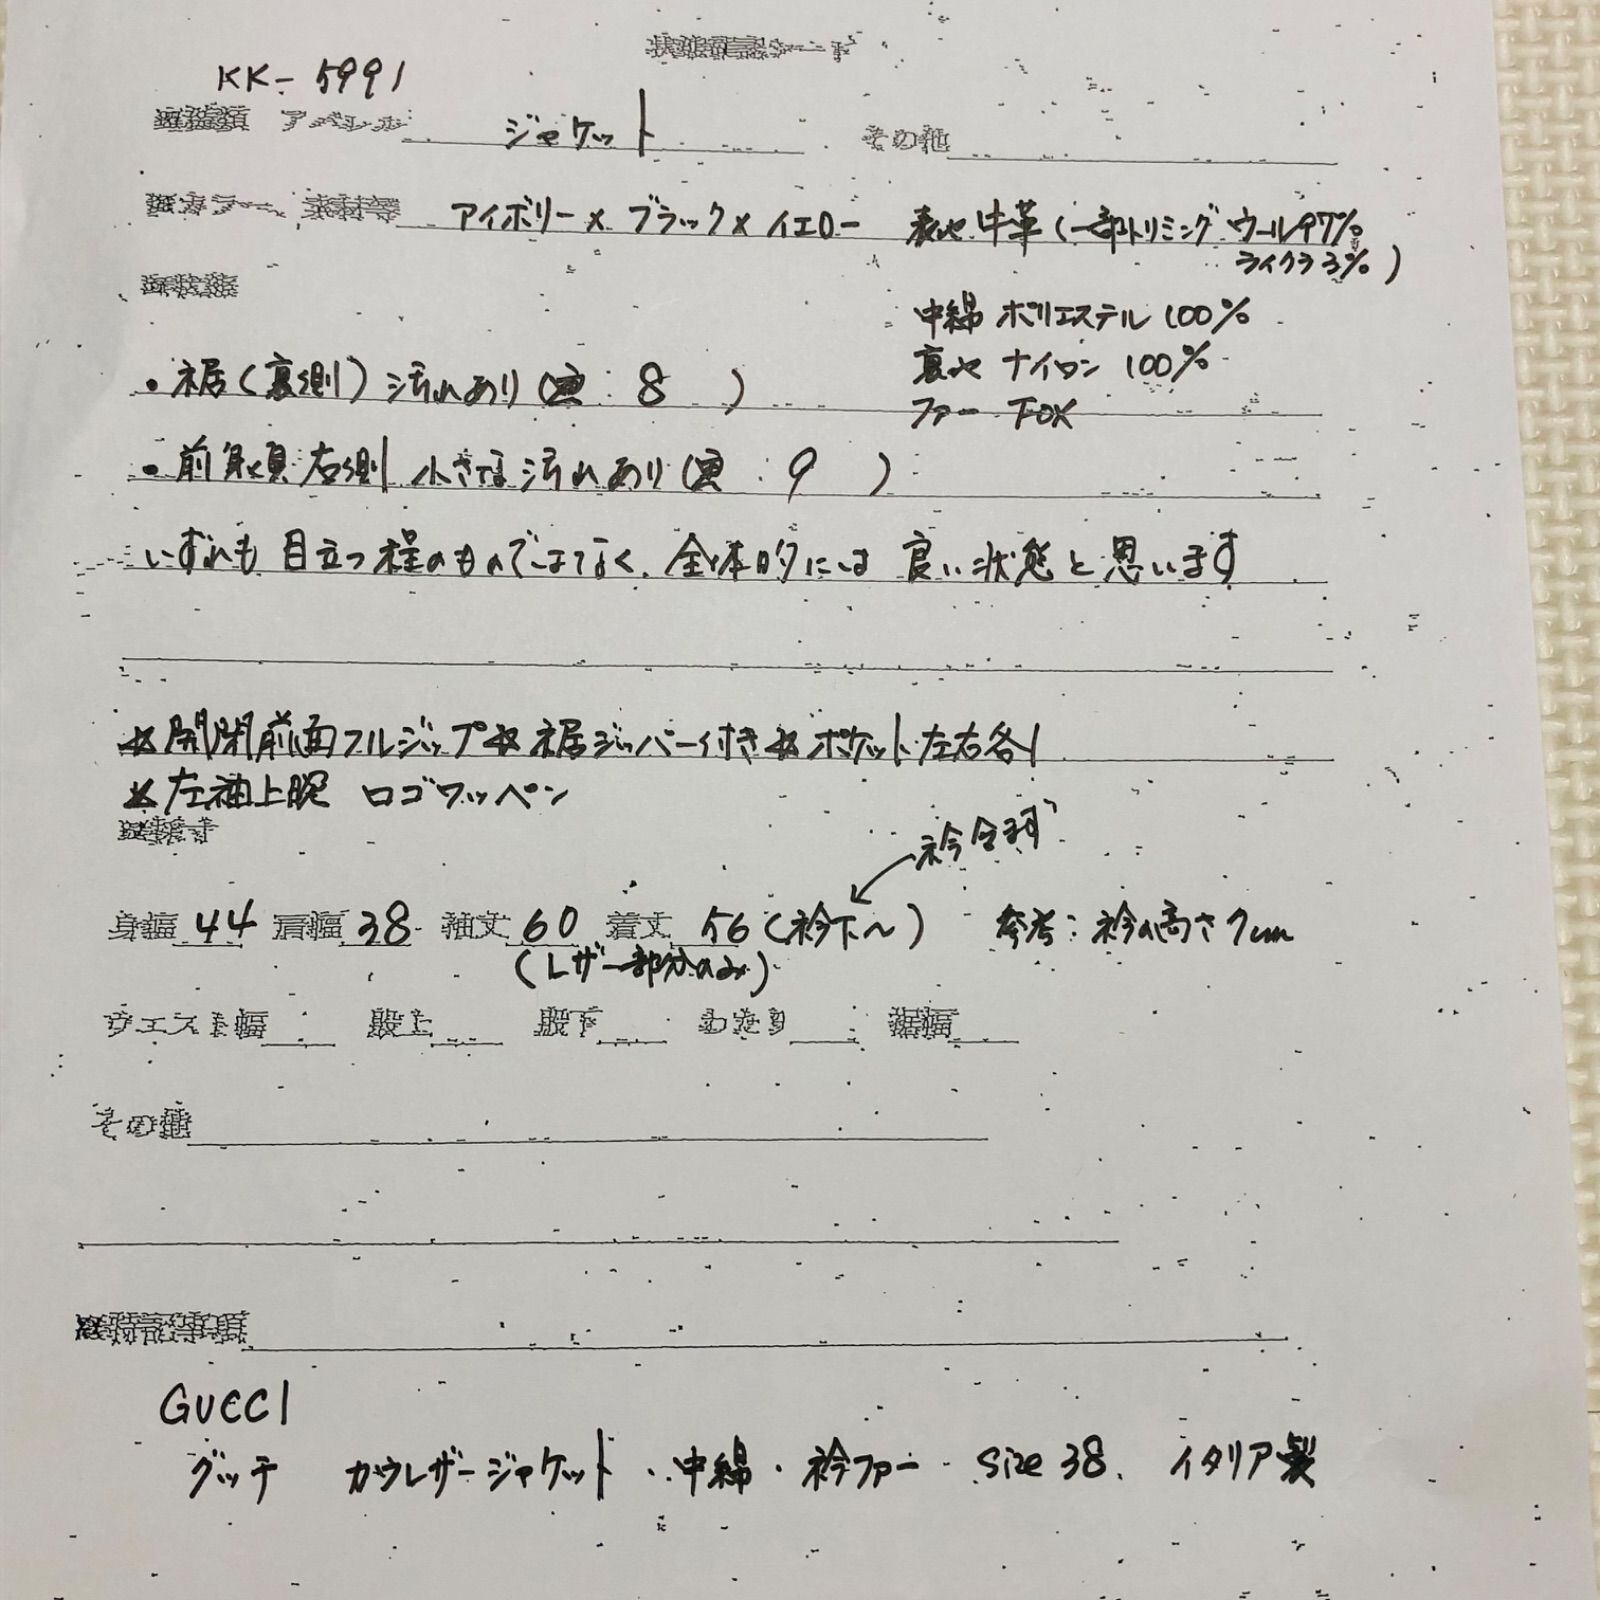 状態確認シート
KK-5991
アパレル ジャケット その他
カラー、素材等 アイボリー×ブラック×イエロー 表地 牛革(一部トリミング ウール97%
ライクラ3%)
状態
中綿 ポリエステル100%
裏地 ナイロン 100%
ファー FOX
・裾(裏側)汚れあり(画:8 )
・前身頃右側 小さな汚れあり(画:9 )
いずれも目立つ程のものではなく、全体的には良い状態と思います
☆開閉前面フルジップ☆裾ジッパー付き☆ポケット左右各1
☆左袖上腕 ロゴワッペン
採寸
衿含まず
身幅 44 肩幅 38 袖丈 60 着丈 56(衿下~) 参考:衿の高さ7cm
(レザー部分のみ)
ウエスト幅 股上 股下 わたり 裾幅
その他
特記事項
GUCCI
グッチ カウレザージャケット・中綿・衿ファー size 38. イタリア製